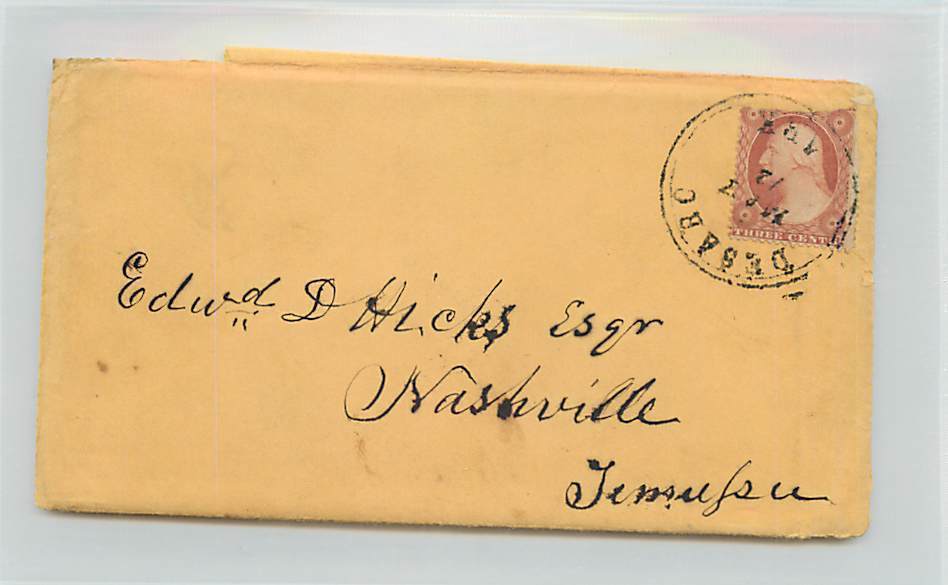 DESARC
ARK
MAY
12
THREE CENT
Edwd D Hicks Esqr
Nashville
Tennessee